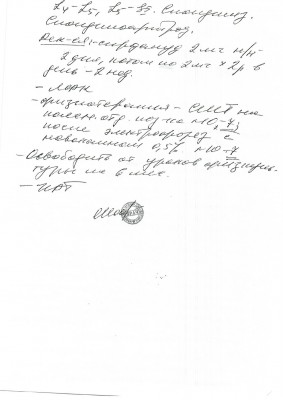 L4-L5, L5-S1. Спондилез.
Спондилоартроз.
Рек-ся: - сирдалуд 2 мг н/н-
2 дня, потом по 2 мг х 2 р в
день - 2 нед.
- ЛФК
- физиотерапия - СМТ на
поясн. отд. поз-ка №0-7,
после электрофорез
новокаином 0,5% №0-7
- Освободить от уроков физкуль-
туры на 6 мес.
- ИРТ